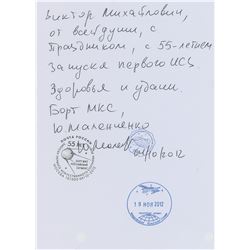 Виктор Михайлович,
от всей души, с
Праздником, с 55-летием
Запуска первого ИСЗ
Здоровья и удачи.
Борт МКС,
Ю. Маленченко
04/10/2012
ПОЧТА РОССИИ
55 лет
19 НОЯ 2012